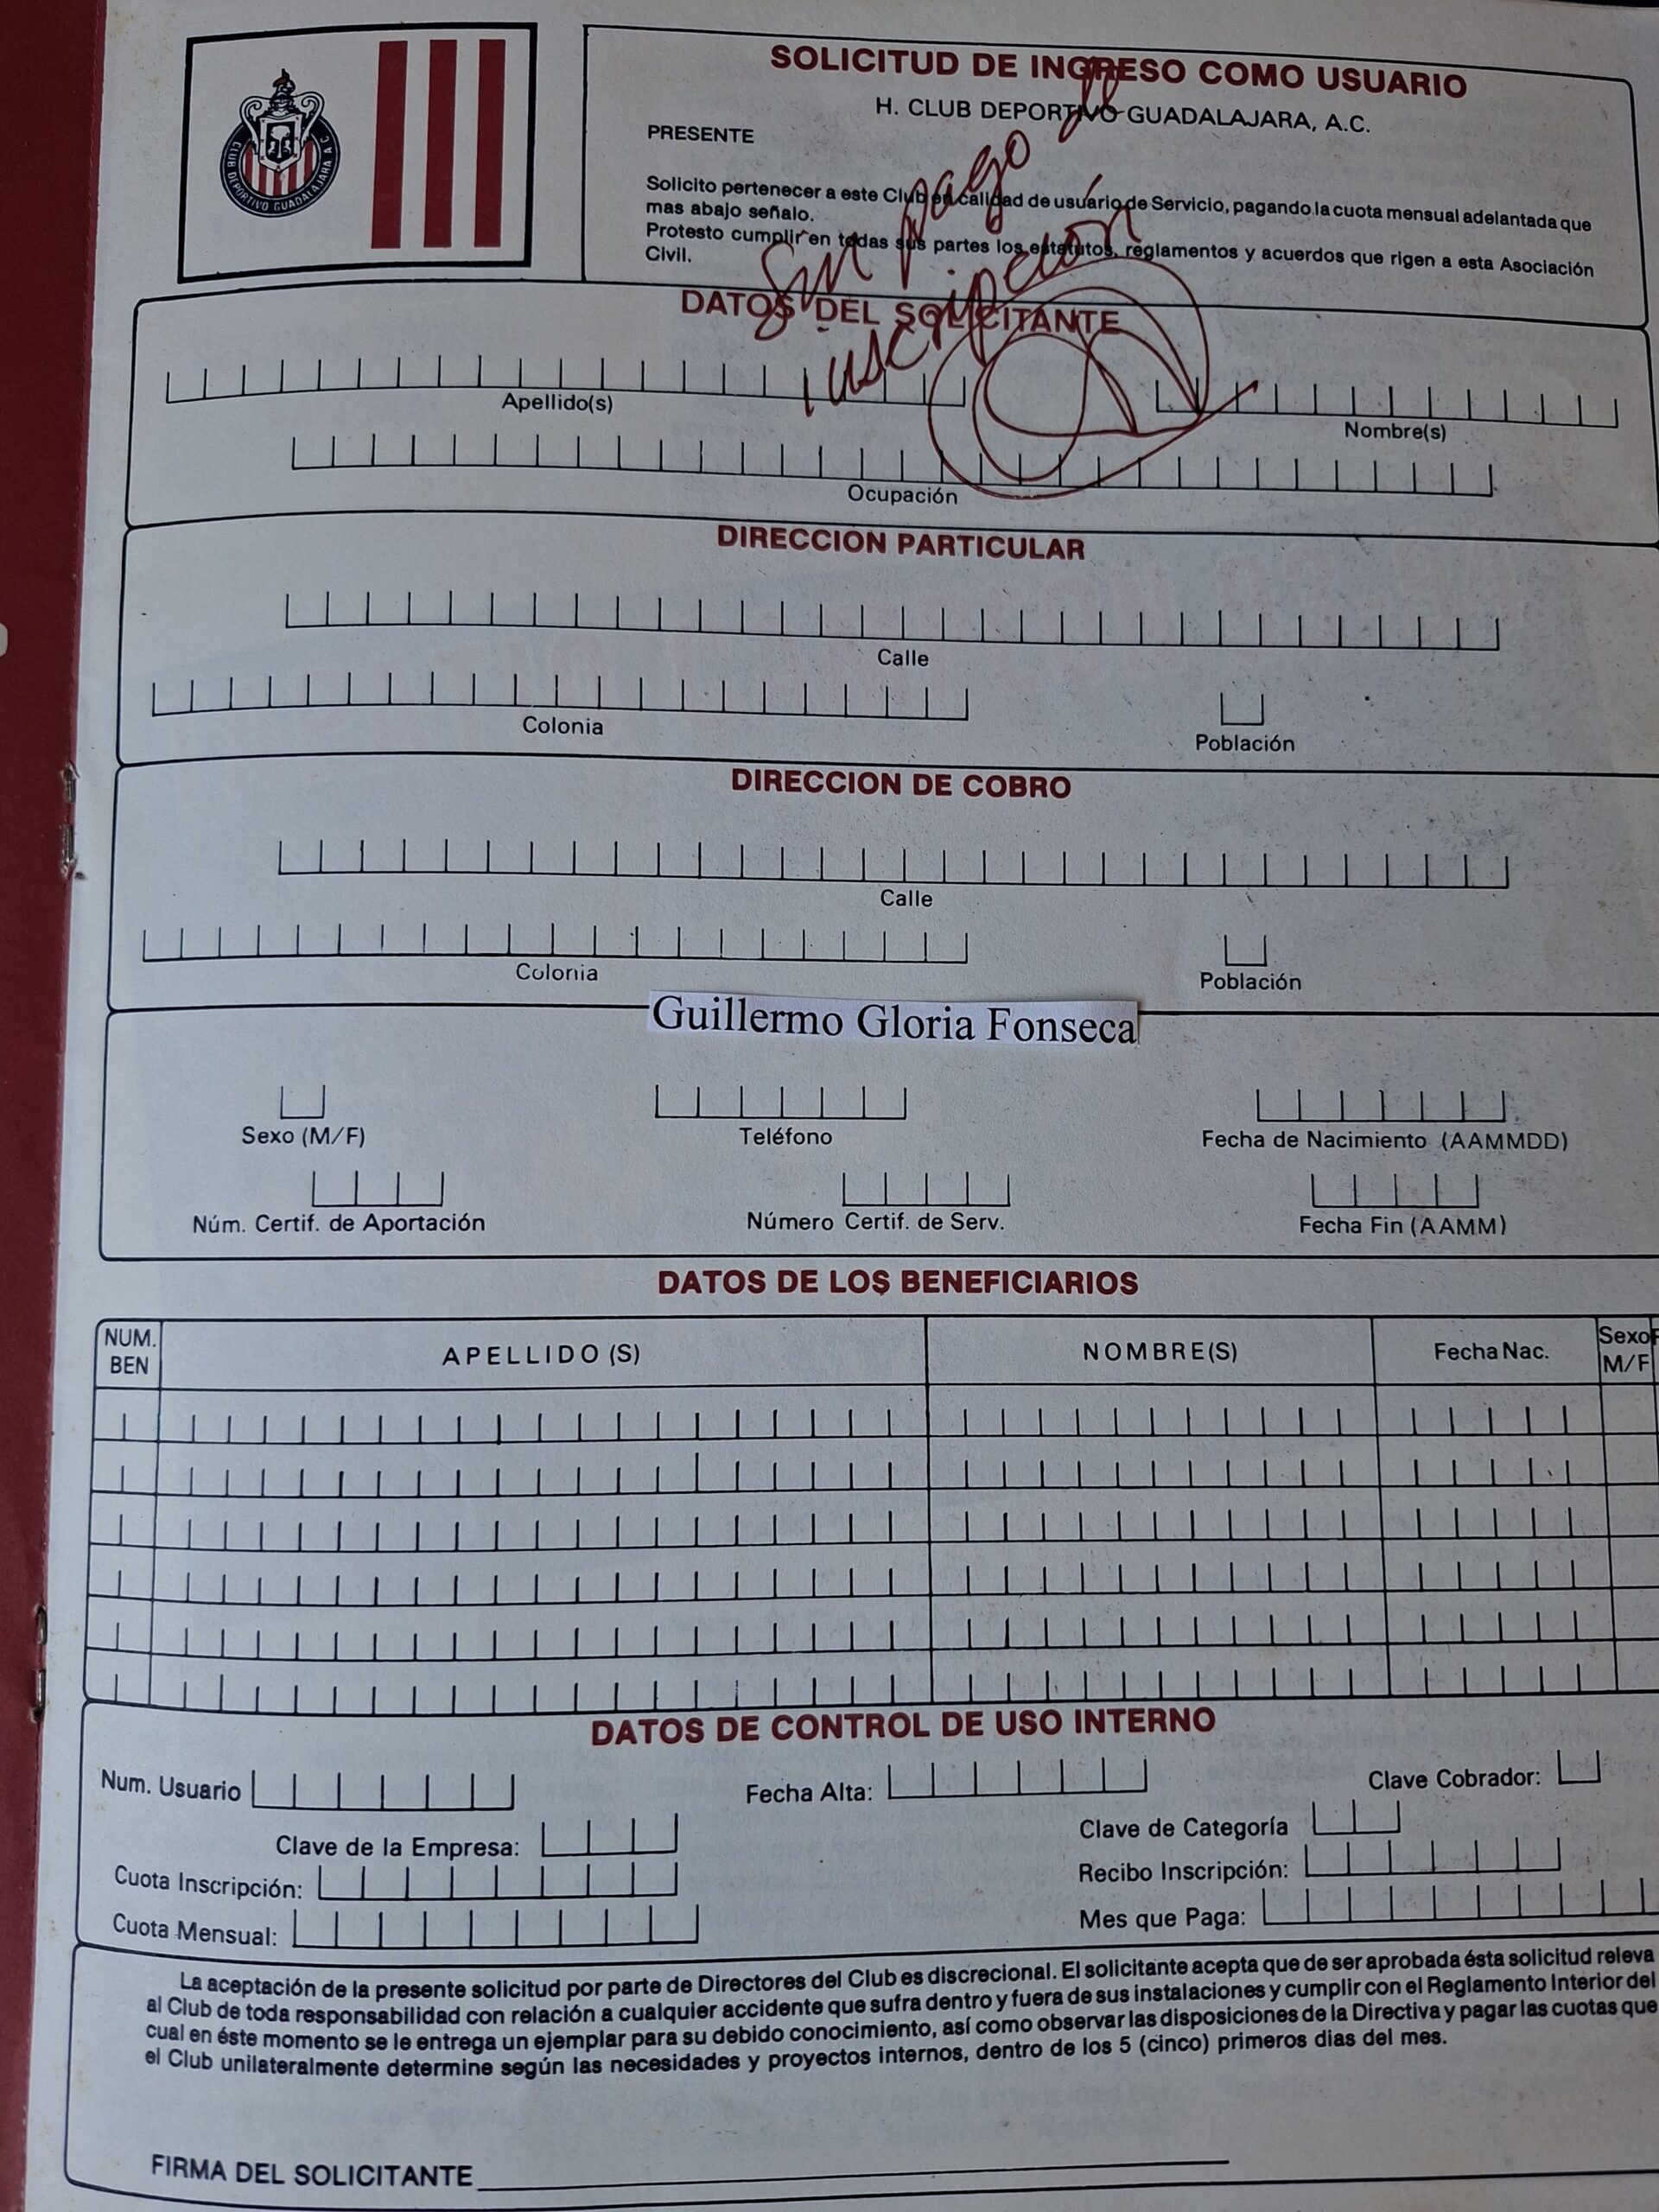 CLUB DEPORTIVO GUADALAJARA A.C.
SOLICITUD DE INGRESO COMO USUARIO
H. CLUB DEPORTIVO GUADALAJARA, A.C.
PRESENTE
Solicito pertenecer a este Club en calidad de usuario de Servicio, pagando la cuota mensual adelantada que
mas abajo señalo.
Protesto cumplir en todas sus partes los estatutos, reglamentos y acuerdos que rigen a esta Asociación
Civil.
Sin pago
inscripción
DATOS DEL SOLICITANTE
Apellido(s) Nombre(s)
Ocupación
DIRECCION PARTICULAR
Calle
Colonia Población
DIRECCION DE COBRO
Calle
Colonia Población
Guillermo Gloria Fonseca
Sexo (M/F) Teléfono Fecha de Nacimiento (AAMMDD)
Núm. Certif. de Aportación Número Certif. de Serv. Fecha Fin (AAMM)
DATOS DE LOS BENEFICIARIOS
NUM. BEN APELLIDO (S) NOMBRE(S) Fecha Nac. Sexo M/F
DATOS DE CONTROL DE USO INTERNO
Num. Usuario Fecha Alta: Clave Cobrador:
Clave de la Empresa: Clave de Categoría
Cuota Inscripción: Recibo Inscripción:
Cuota Mensual: Mes que Paga:
La aceptación de la presente solicitud por parte de Directores del Club es discrecional. El solicitante acepta que de ser aprobada ésta solicitud releva
al Club de toda responsabilidad con relación a cualquier accidente que sufra dentro y fuera de sus instalaciones y cumplir con el Reglamento Interior del
cual en éste momento se le entrega un ejemplar para su debido conocimiento, así como observar las disposiciones de la Directiva y pagar las cuotas que
el Club unilateralmente determine según las necesidades y proyectos internos, dentro de los 5 (cinco) primeros dias del mes.
FIRMA DEL SOLICITANTE